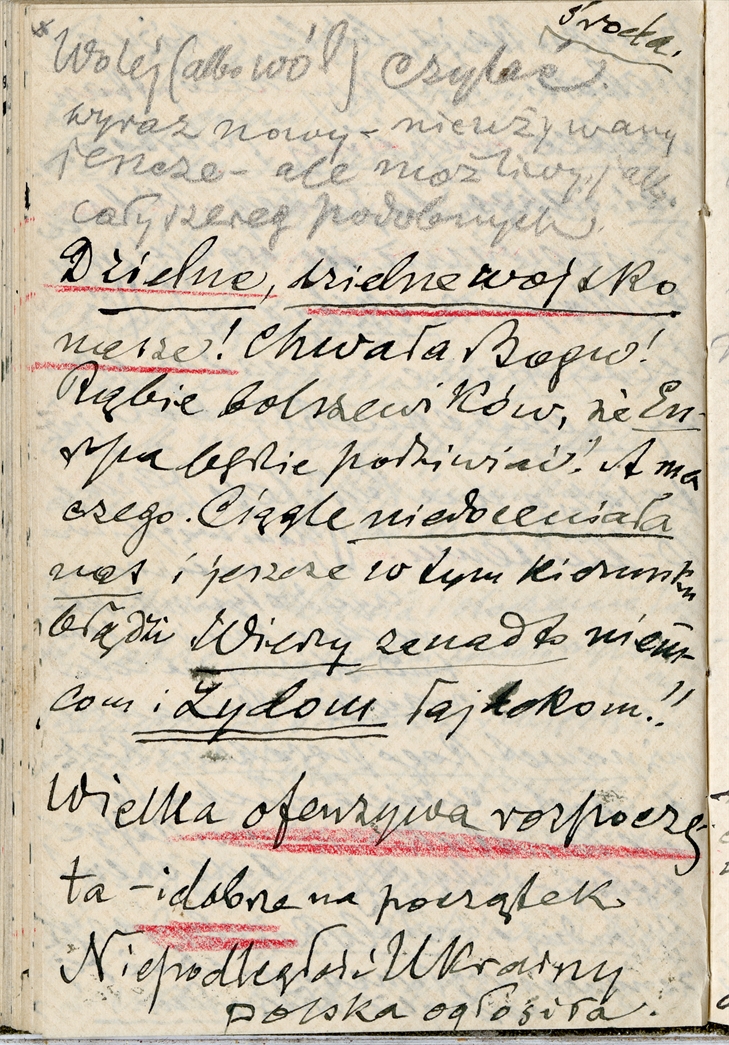 środa.
x Wolej (albo wół) czytać.
wyraz nowy - nieużywany
jeszcze - ale możliwy, jak
cały szereg podobnych.
Dzielne, dzielne wojsko
nasze! Chwała Bogu!
Rąbie bolszewików, że Eu-
ropa będzie podziwiać! A ma
czego. Ciągle niedoceniała
nas i jeszcze w tym kierunku
błądzi Wierzy zanadto niem-
com i Żydom łajdakom!!
Wielka ofenzywa rozpoczę-
ta - i dobrze na początek
Niepodległość Ukrainy
Polska ogłosiła.